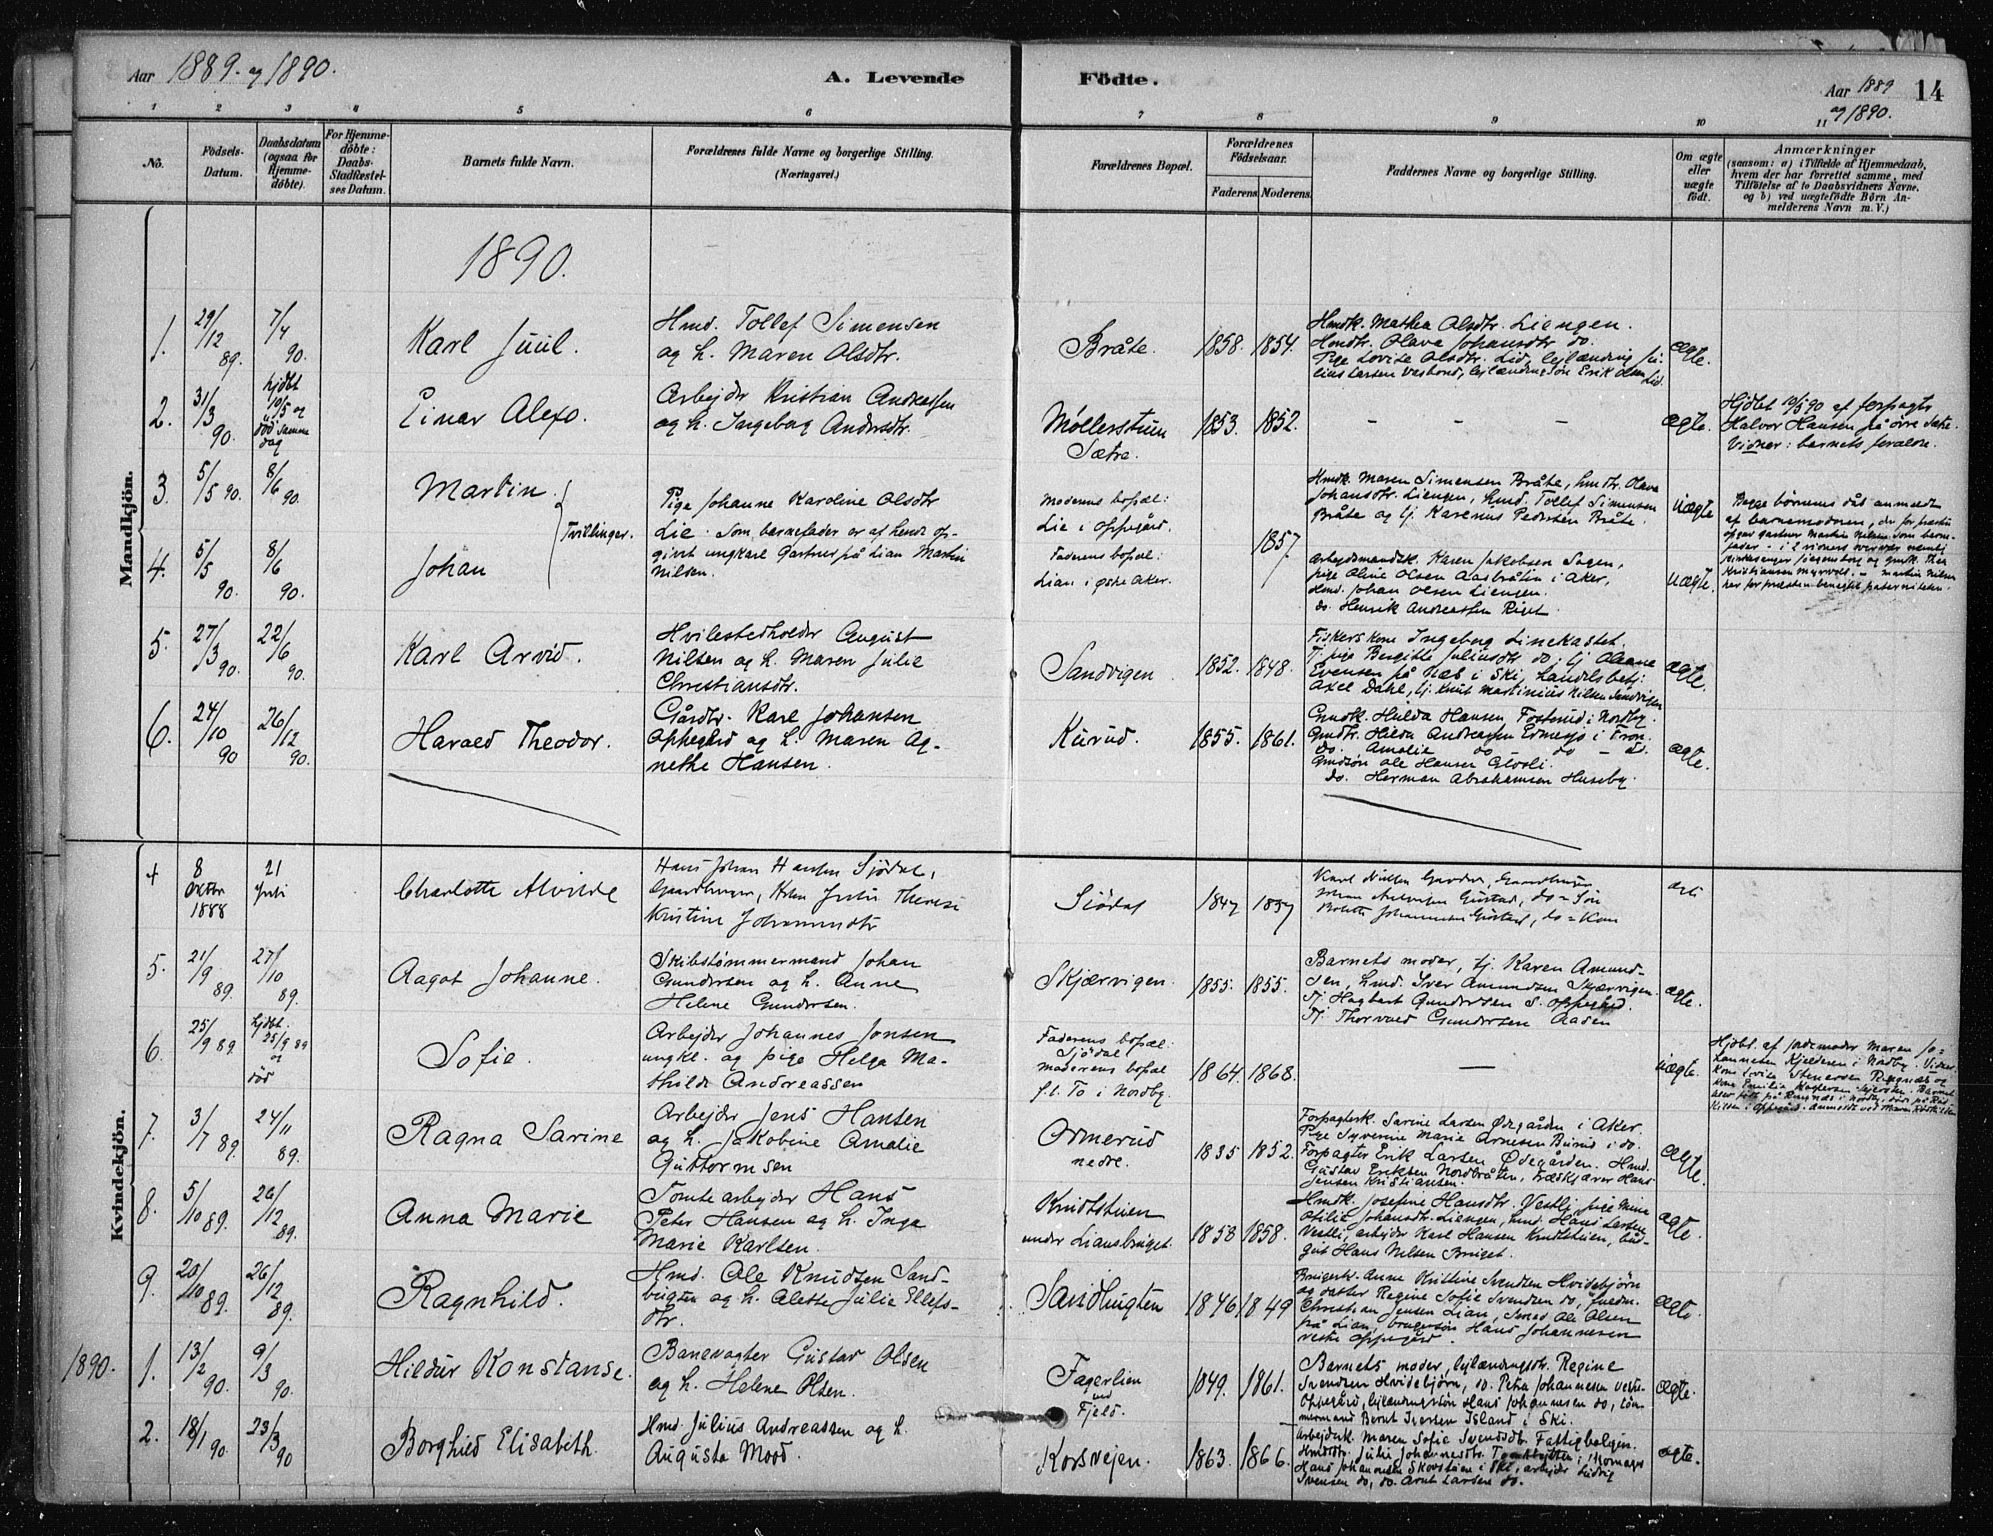 Aar 1889. og 1890.
A. Levende Födte.
Aar 1889 og 1890.
14
1 2 3 4 5 6 7 8 9 10 11
No.
Födsels-Datum.
Daabsdatum (ogsaa for Hjemmedöbte).
For Hjemmedöbte: Daabs-Stadfæstelses Datum.
Barnets fulde Navn.
Forældrenes fulde Navne og borgerlige Stilling.
(Næringsvei.)
Forældrenes Bopæl.
Forældrenes Födselsaar.
Faderens. Moderens.
Faddernes Navne og borgerlige Stilling.
Om ægte eller uægte födt.
Anmærkninger
(saasom: a) i Tilfælde af Hjemmedaab,
hvem der har forrettet samme, med
Tilföielse af to Daabsvidners Navne.
og b) ved uægtefödte Börn An-
melderens Navn m. V.)
Mandkjön.
1890.
1. 29/12 89. 7/4 90.
Karl Juul.
Hmd. Tollef Simensen
og h. Maren Olsdtr.
Bråte.
1858. 1854.
Hmdk. Mathea Olsdtr. Liengen.
Hmdtr. Olava Johansdtr. do.
Pige Lovise Olsdtr. Lid, lejlænding Ju-
lius Larsen Vesbond, lejlændings søn Erik Olsen Lid.
ægte.
2. 31/3 90. hjdbt 10/5 og død samme dag
Einar Alexo.
Arbejder Kristian Andreassen
og h. Ingeborg Andersdtr.
Møllerstuen
Sætre.
1853. 1852.
- - -
ægte.
Hjdbt 10/5 90 af forpagter
Halvor Hansen på øvre Sætre.
Vidner: barnets forældre.
3. 5/5 90. 8/6 90.
Martin.
Tvillinger.
Pige Johanne Karoline Olsdtr
Lie. Som barnefader er af hende op-
givet ungkarl Gartner på Lian Martin
Nilsen.
Moderens bopæl:
Lie i Oppegård.
Faderens bopæl:
Lian i østre Aker.
1857
Hmdk. Maren Simensen Bråte, hmdtr. Olava
Johansdtr. Liengen, hmd. Tollef Simensen
Bråte og tj. Karenius Pedersen Bråte.
uægte
Begge børnenes dåb anmeldt
af barnemoderen, der for præsten
opgav gartner Martin Nilsen som barne-
fader - i 2 vidners overvær nemlig
kirkesanger
Kristiansen Myrvold. - Martin Nilsen
har for præsten benegtet paterniteten.
4. 5/5 90. 8/6 90.
Johan
Arbejdsmandsk. Karen Jakobsen Sagen,
pige Oline Olsen Aasbråtin i Aker,
Hmd. Johan Olsen Liengen.
do. Henrik Andreassen Riget.
uægte.
5. 27/3 90. 22/6 90.
Karl Arvid.
Hvilestedholder August
Nilsen og h. Maren Julie
Christiansdtr.
Sandvigen
1852. 1848.
Fiskers kone Ingeborg Linekastet.
Tj. pige Bergitte Juliusdtr do. tj. Oleane
Evensen på Næs i Ski, Landelsbetj.
Axel Dahl, tj. Knut Martinius Nilsen Sandvigen
ægte.
6. 24/10 90 26/12 90.
Harald Theodor.
Gårdbr. Karl Johansen
Oppegård og h. Maren Ag-
nethe Hansen.
Kurud.
1855. 1861.
Gmdk. Hulda Hansen, Fosterud i Nordby.
Gmdtr. Hilda Andreassen Edmesjø i Fron
do. Amalie do - do.
Gmdsøn Ole Hansen Glosli.
do. Herman Abrahamsen Huseby.
ægte.
Kvindekjön.
4 8 Oktbr 1888 21 Juli
Charlotte Alvilde
Hans Johan Hansen Sjödal,
Gaardbruger, Kone Julie Therese
Kristine Johannesdtr
Sjödal
1847 1837
Karl Nilsen, Gaardbruger
Gustad, do = Søn
Bolette Johannesen Gustad, do = Kone
ægte
5. 21/9 89. 27/10 89.
Aagot Johanne.
Skibstømmermand Johan
Gundersen og h. Anne
Helene Gundersen.
Skjærvigen.
1855. 1855.
Barnets moder, tj. Karen Amund-
sen, hmd. Iver Amundsen Skjærvigen.
Tj. Hagbart Gundersen S. Oppegård.
Tj. Thorvald Gundersen Aasen
ægte.
6. 25/9 89. hjdbt. 25/9 89 og død
Sofie.
Arbejder Johannes Jonsen
ungkl. og pige Helga Ma-
thilde Andreassen
Faderens bopæl:
Sjödal
moderens bopæl
f.t. To i Nordby.
1864. 1868.
-
uægte.
Hjdbt. af jordemoder Maren Jo-
hannesen Kjelderen i Nordby. Vidner
7. 3/7 89. 24/11 89.
Ragna Sarine
Arbejder Jens Hansen
og h. Jakobine Amalie
Guttormsen
Ormerud
nedre.
1835 1852.
Forpagterk. Sarine Larsen Ødegården i Aker.
Pige Syverine Marie Arnesen Burud i do.
Forpagter Erik Larsen Ødegården. Hmd.
Gustav Eriksen Nordbråten, træskjærer Hans
Jensen Kristiansen.
ægte.
8. 5/10 89. 26/12 89.
Anna Marie
Tomtearbejder Hans
Peter Hansen og h. Inga
Marie Karlsen.
Knudtstuen
under Liansbruget.
1858 1858.
Hmdk. Josefine Hansdtr. Vestli, pige Mina
Otilie Johansdtr. Liengen, hmd. Hans Larsen
Vestli, arbejder Karl Hansen Knudtstuen, båd-
gut Hans Nilsen Bruget.
ægte.
9. 20/10 89. 26/12 89.
Ragnhild.
Hmd. Ole Knudsen Sand-
bugten og h. Alette Julie Ellefs-
dtr.
Sandbugten
1846 1849
Brugersk. Anne Kristine Svendsen Hvidebjörn
og datter Regine Sofie Svendsen do, fuldm.
Christian Jensen Lian, Smed Ole Olsen
på Lian, brugersøn Hans Johannesen
vestre Oppegård.
ægte.
1890.
1. 13/2 90. 9/3 90.
Hildur Konstanse.
Banevogter Gustav Olsen
og h. Helene Olsen.
Fagerlien
ved
Fjeld.
1849. 1861.
Barnets moder, lejlændingsdtr. Regine
Svendsen Hvidebjörn, do. Petra Johannesen vestre
Oppegård, lejlændingsøn Hans Johannesen do, töm-
mermand Bernt Iversen Island i Ski.
ægte.
2. 18/1 90. 23/3 90
Borghild Elisabeth.
Hmd. Julius Andreassen og h.
Augusta Mood.
Korsvejen.
1863. 1866.
Arbejderk. Maren Sofie Svendsdtr. Fattigboligen.
Hmdtr. Julie Johannesdtr. Tomthytten, skomager
Hans Johannesen Skovstuen i Ski, arbejder Ludvig
Svensen do, do. Arnt Larsen do.
ægte.